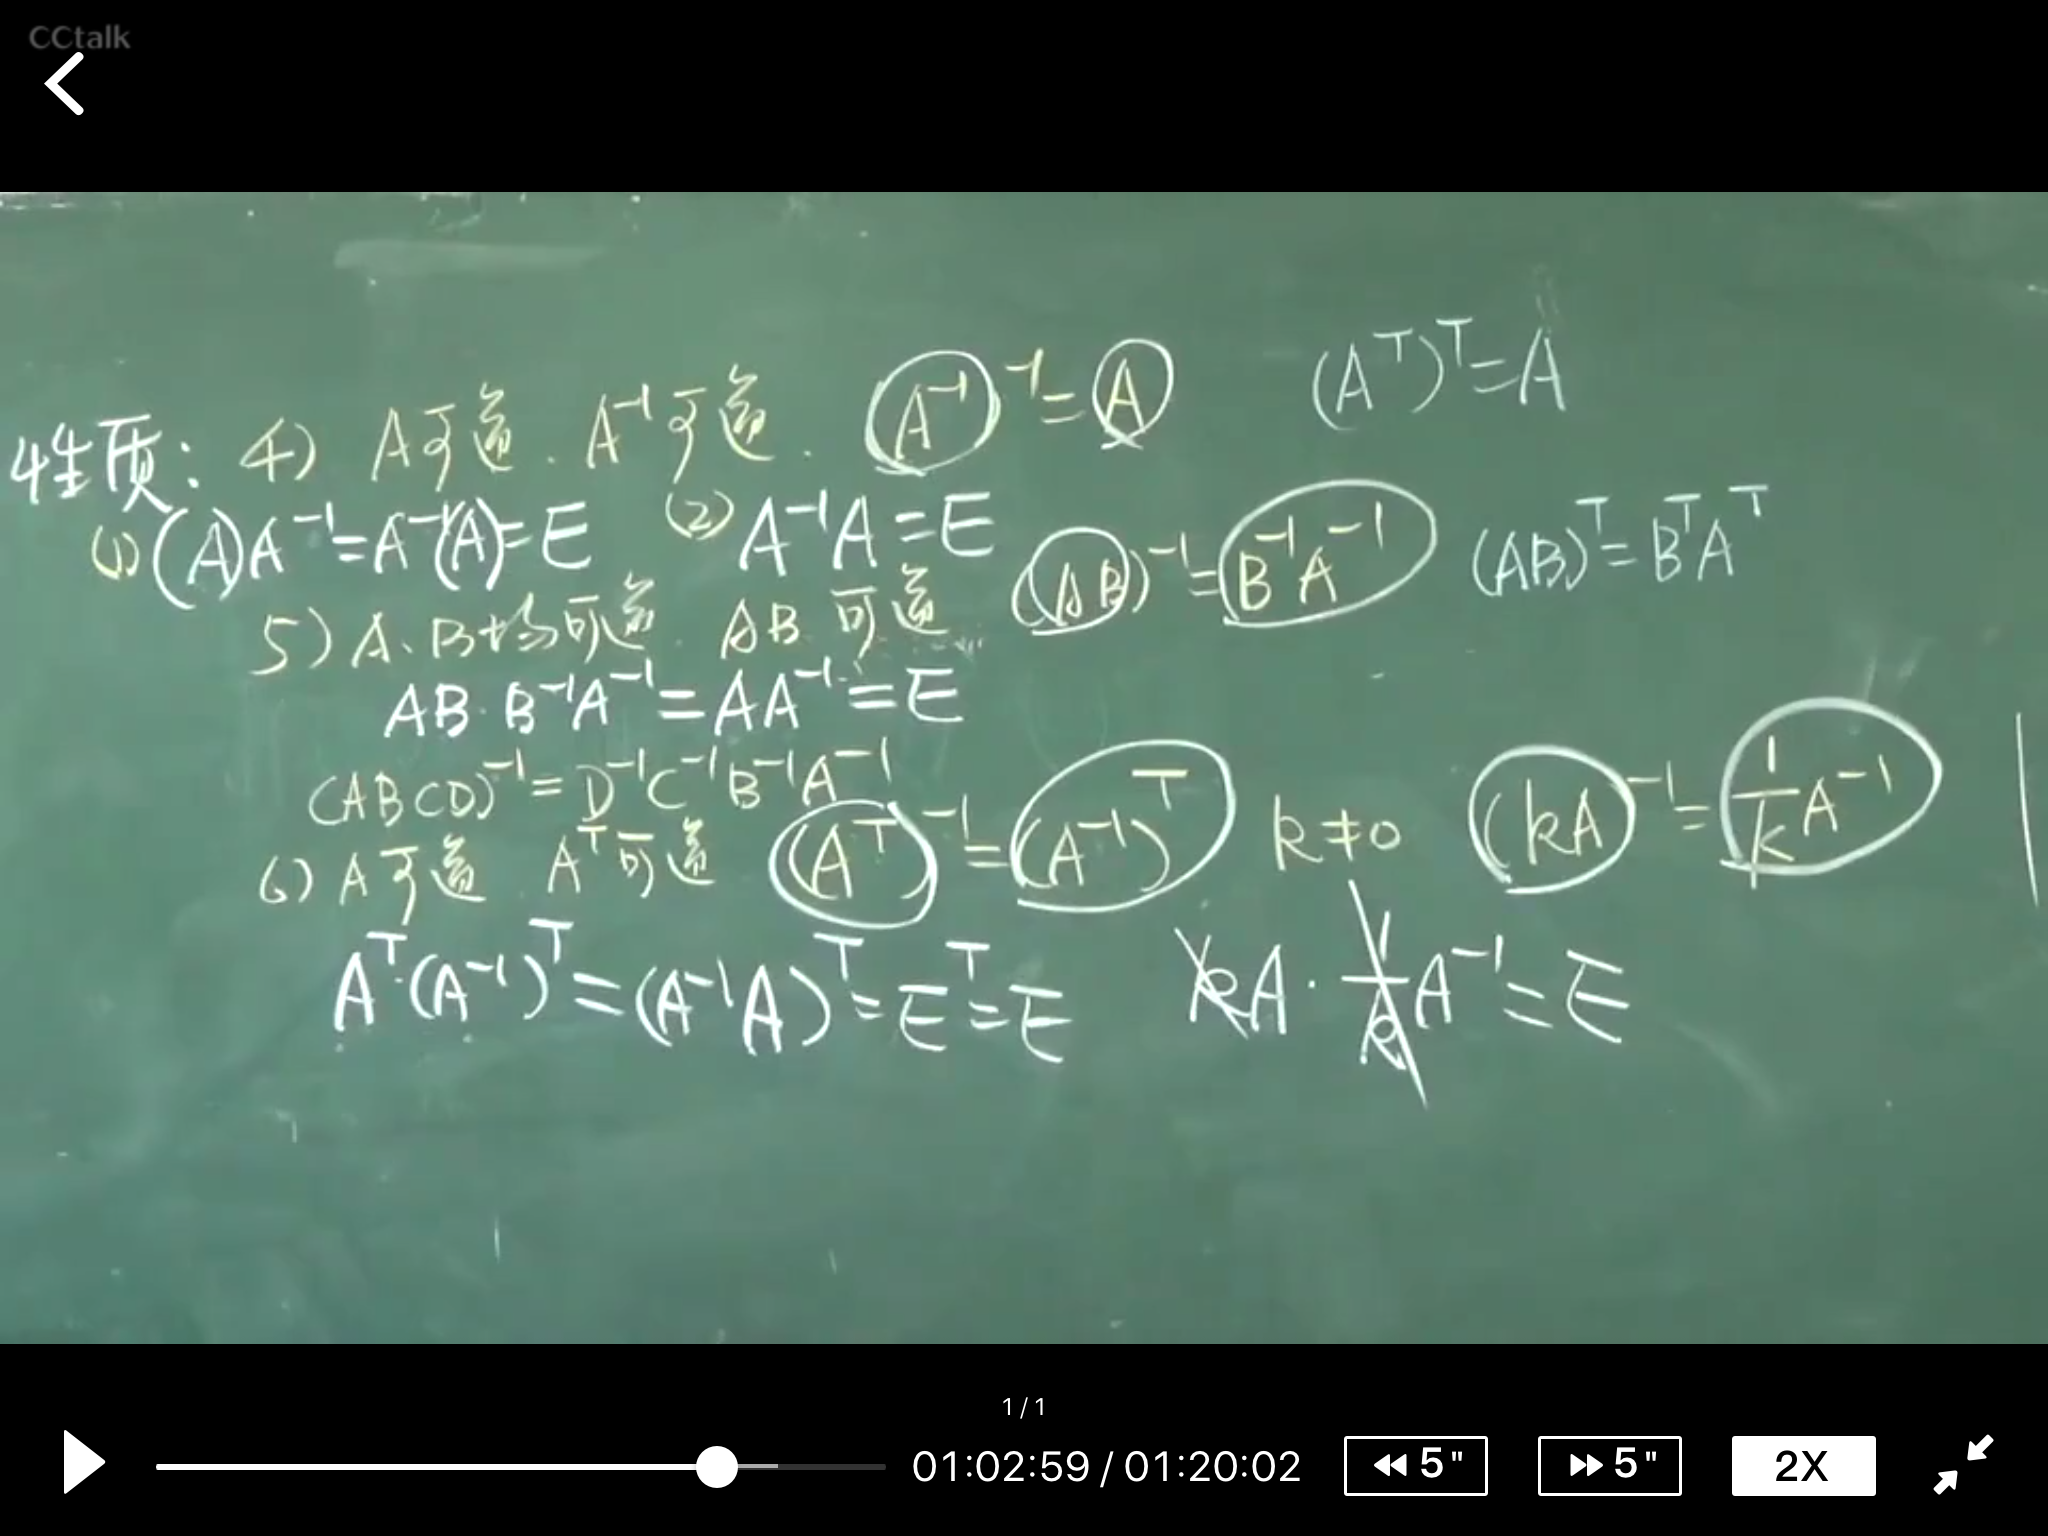 CCtalk
性质: 4) A可逆. A⁻¹可逆. (A⁻¹)⁻¹=A (Aᵀ)ᵀ=A
(1) (A)A⁻¹=A⁻¹(A)=E (2) A⁻¹A=E
5) A、B均可逆. AB可逆 (AB)⁻¹=B⁻¹A⁻¹ (AB)ᵀ=BᵀAᵀ
AB·B⁻¹A⁻¹=AA⁻¹=E
(ABCD)⁻¹=D⁻¹C⁻¹B⁻¹A⁻¹
6) A可逆 Aᵀ可逆 (Aᵀ)⁻¹=(A⁻¹)ᵀ k≠0 (kA)⁻¹=1/k A⁻¹
Aᵀ·(A⁻¹)ᵀ=(A⁻¹A)ᵀ=Eᵀ=E kA·1/k A⁻¹=E
1/1
01:02:59/01:20:02 5" 5" 2X